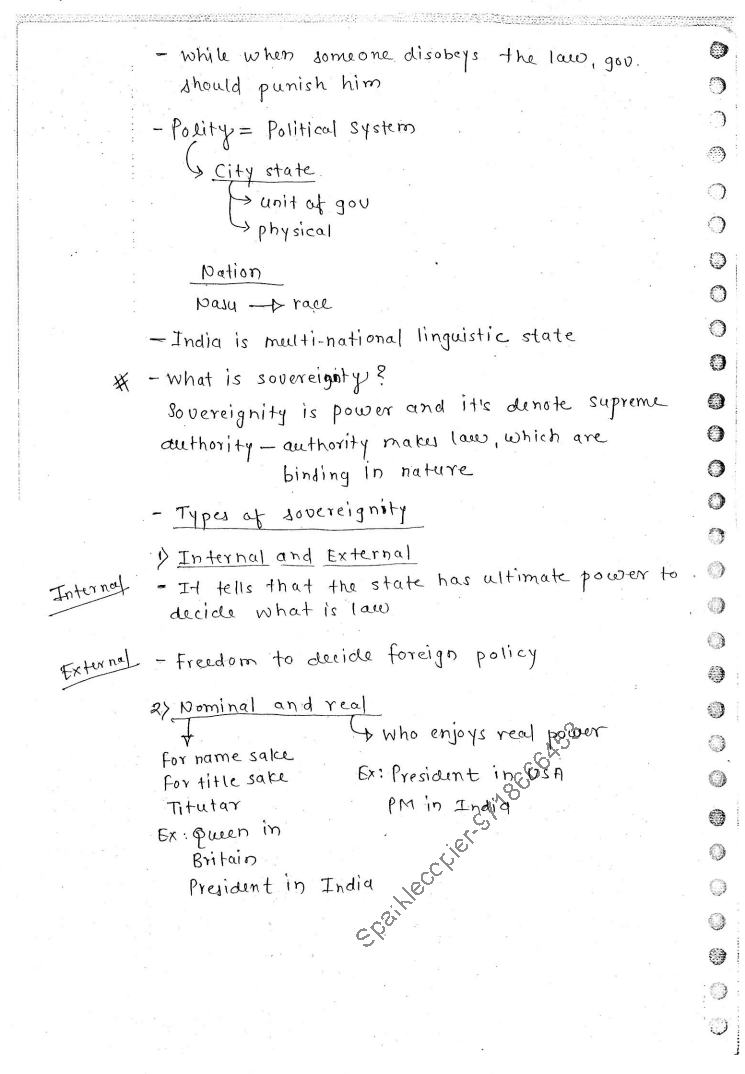 - while when someone disobeys the law, gov.
should punish him
- Polity = Political System
City state
unit of gov
physical
Nation
Nasu → race
- India is multi-national linguistic state
# - What is sovereignity?
Sovereignity is power and it's denote supreme
authority - authority makes law, which are
binding in nature
- Types of sovereignity
1) Internal and External
Internal - It tells that the state has ultimate power to
decide what is law
External - Freedom to decide foreign policy
2) Nominal and real
who enjoys real power
For name sake
For title sake
Titutar
Ex: President in USA
PM in India
Ex: Queen in
Britain
President in India